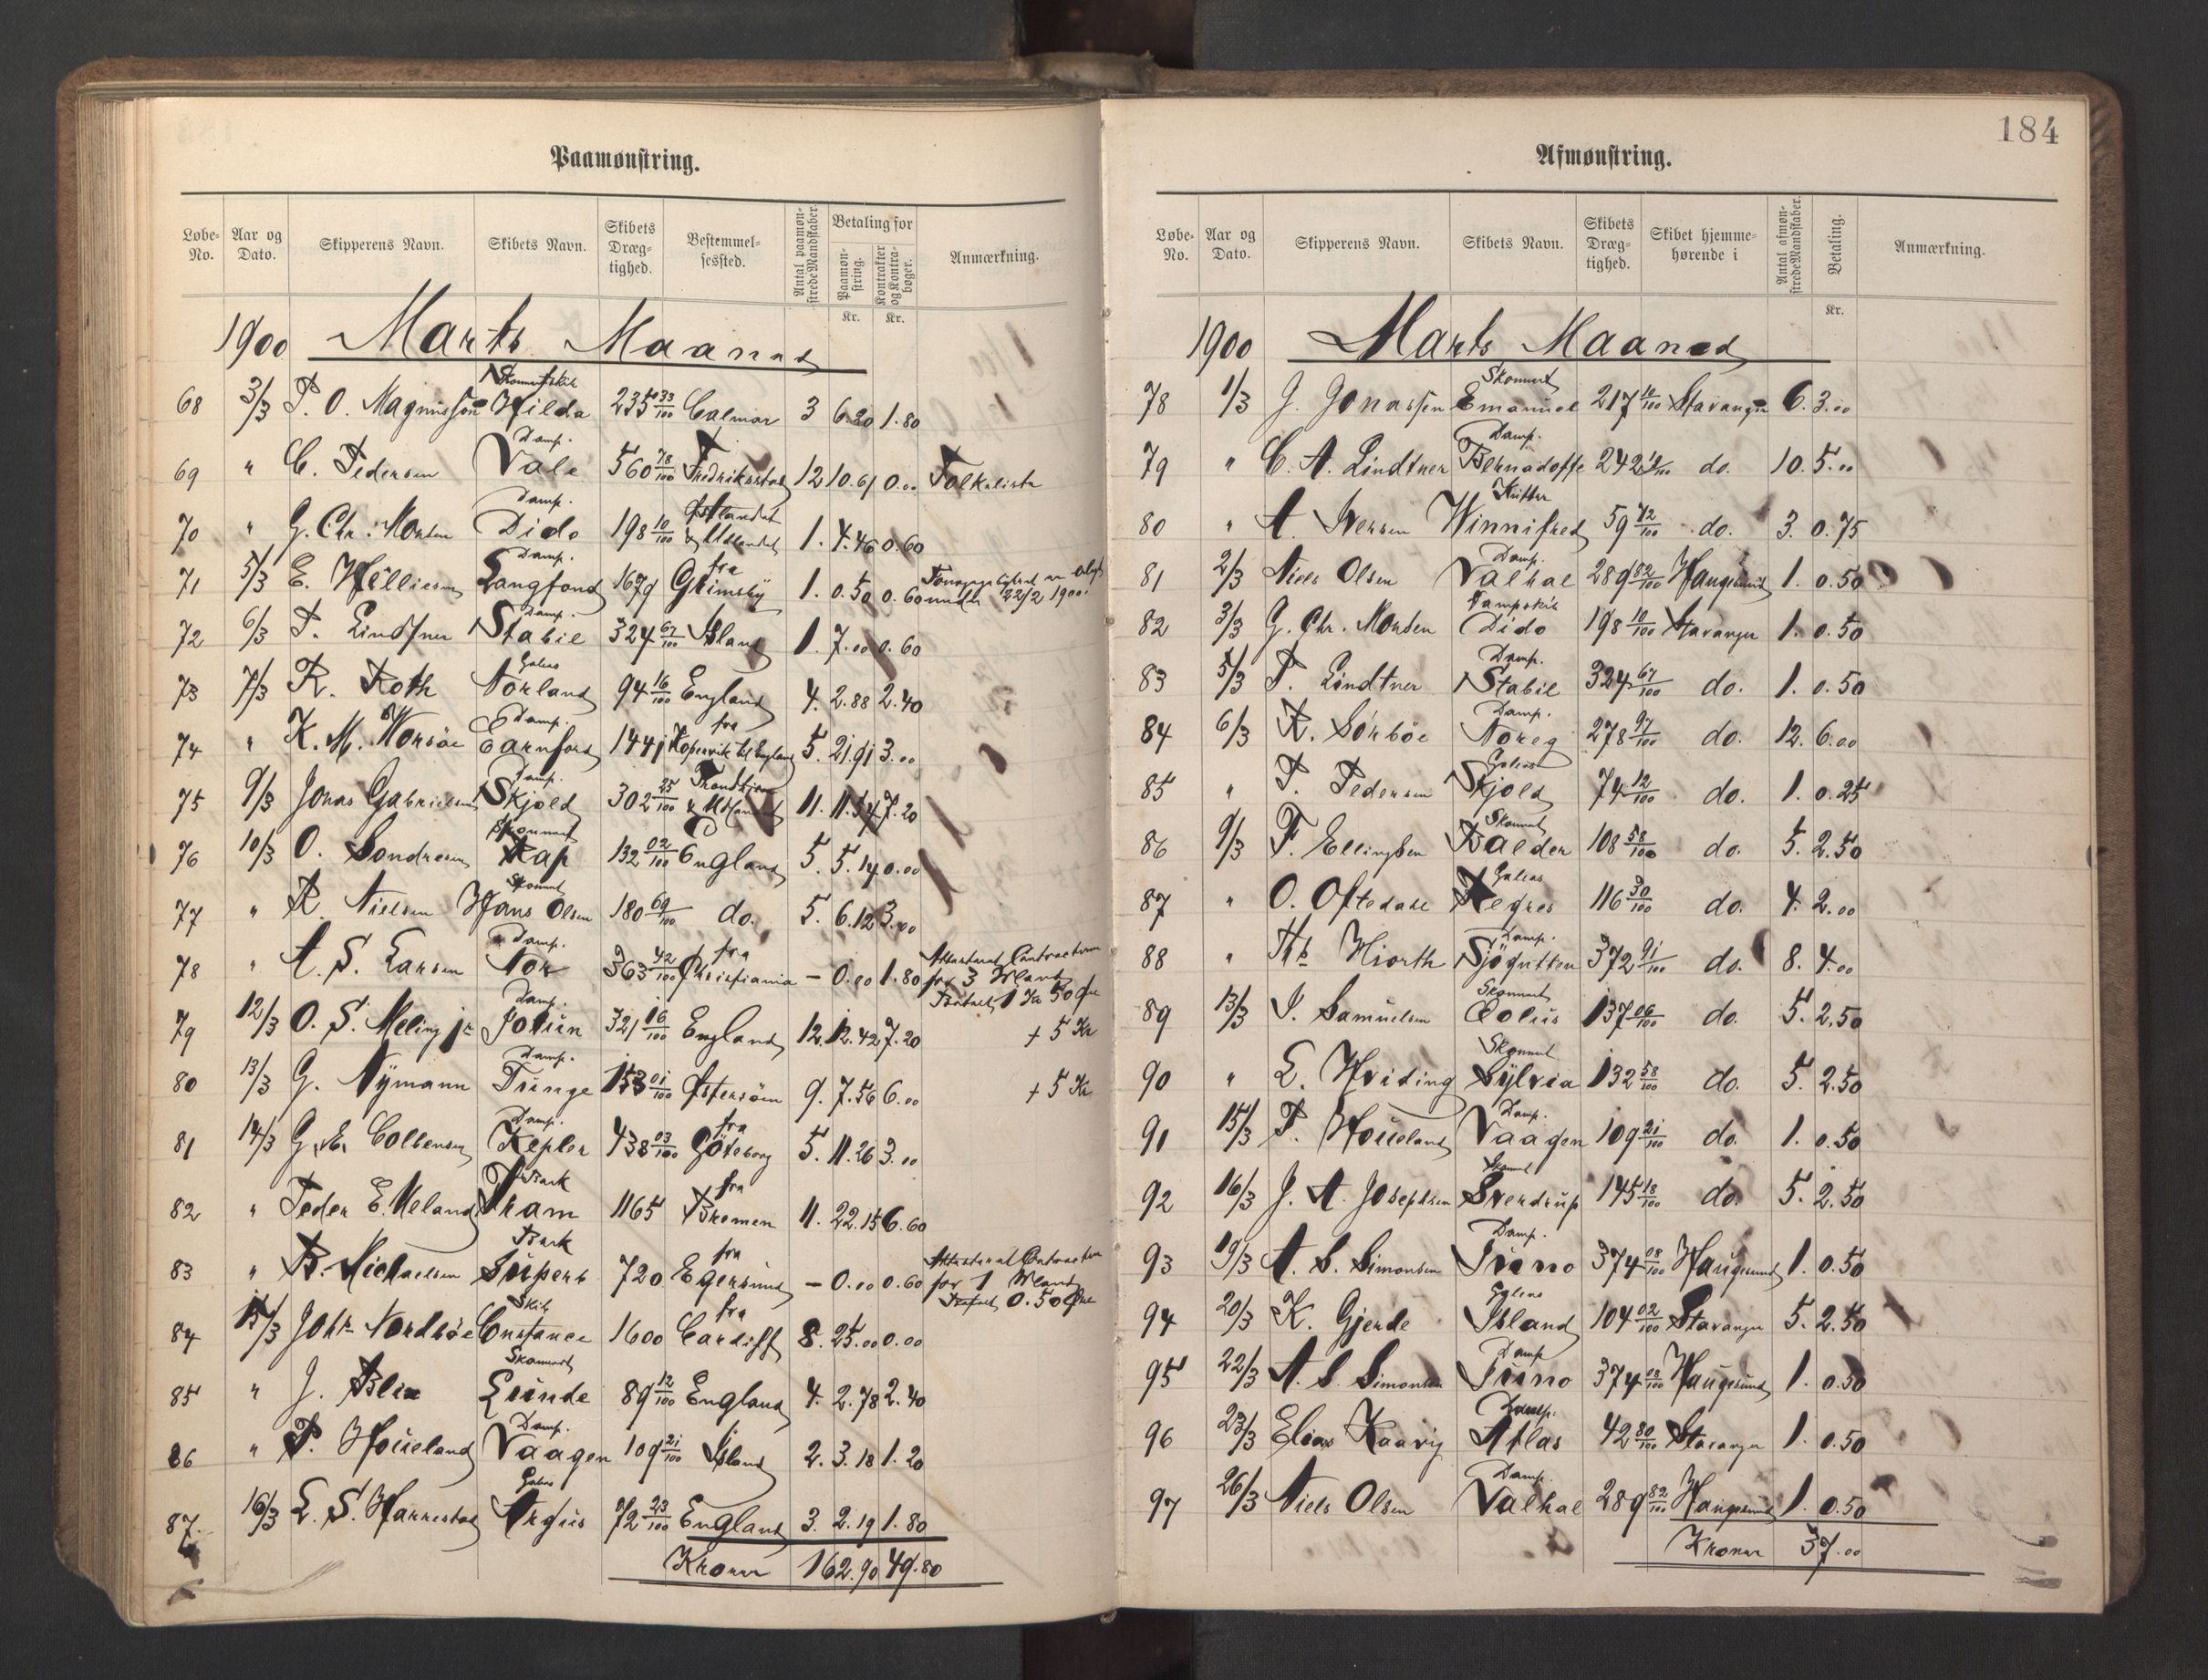 Paamønstring.
Løbe-No. Aar og Dato. Skipperens Navn. Skibets Navn. Skibets Dræg-tighed. Bestemmel-sessted. Antal paamøn-strede Mandskaber. Betaling for Paamøn-string. Kontrakter og Kontra-bøger. Anmærkning.
Kr. Kr.
1900 Marts Maaned
68 3/3 P. O. Magnusson Skonnertskib Hilda 235 33/100 Calmar 3 6.20 1.80
69 " C. Pedersen Damp. Vale 560 78/100 Fredriksstad 12 10.61 0.00 Folkeliste
70 " G. Chr. Monsen Damp. Dido 198 10/100 Østlandet & Udlandet 1. 4.46 0.60
71 5/3 E. Williesen Damp. Langfond 1679 fra Grimsby 1. 0.50 0.60 under 22/2 1900.
72 6/3 P. Lindtner Damp. Stabil 324 67/100 Island 1. 7.00 0.60
73 7/3 R. Roth Galeas Norland 94 16/100 England 4. 2.88 2.40
74 " K. M. Worsøe Damp. Earnford 1441 fra Kopervik til England 5. 21.91 3.00
75 9/3 Jonas Gabrielsen Damp. Skjold 302 25/100 Trondhjem & Udlandet 11. 11.54 7.20
76 10/3 O. Sondresen Skonnert Kap 132 02/100 England 5. 5.14 0.00
77 " R. Nielsen Skonnert Hans Olsen 180 69/100 do. 5. 6.12 3.00
78 " A. S. Larsen Damp. Nor 363 42/100 fra Christiania – 0.00 1.80 Attesteret Contracten for 3 Mand Betalt 1 Kr 50 Øre
79 12/3 O. S. Meling jr Damp. Jotun 321 16/100 England 12. 12.42 7.20 + 5 Kr
80 13/3 G. Nymann Damp. Tunge 153 01/100 Østersöen 9. 7.56 6.00 + 5 Kr
81 14/3 G. E. Collensen Damp. Kepler 438 03/100 fra Göteborg 5. 11.26 3.00
82 " Peder E. Meland Bark Fram 1165 fra Bremen 11. 22.15 6.60
83 " B. Michaelsen Bark Superb 720 fra Egersund – 0.00 0.60 Attesteret Contracten for 1 Mand Betalt 0.50 Øre
84 15/3 Johs Nordbøe Skib Constance 1600 fra Cardiff 8. 25.00 0.00
85 " J. Blix Skonnert Lunde 89 12/100 England 4. 2.78 2.40
86 " P. Houeland Damp. Vaagen 109 21/100 Island 2. 3.18 1.20
87. 16/3 L. S. Harrestad Galeas Argus 72 23/100 England 3. 2.19 1.80
Kroner 162.90 49.80
184
Afmønstring.
Løbe-No. Aar og Dato. Skipperens Navn. Skibets Navn. Skibets Dræg-tighed. Skibet hjemme-hørende i Antal afmøn-strede Mandskaber. Betaling. Anmærkning.
Kr.
1900 Marts Maaned
78 1/3 J. Jonassen Skonnert Emanuel 217 12/100 Stavanger 6. 3.00
79 " C. A. Lindtner Damp. Bernadotte 242 do. 10. 5.00
80 " A. Iversen Kutter Winnifred 59 72/100 do. 3. 0.75
81 2/3 Niels Olsen Damp. Valhal 289 82/100 Haugesund 1. 0.50
82 3/3 G. Chr. Monsen Dampskib Dido 198 10/100 Stavanger 1. 0.50
83 5/3 P. Lindtner Damp. Stabil 324 67/100 do. 1. 0.50
84 6/3 K. Sörböe Damp. Noreg 278 97/100 do. 12. 6.00
85 " P. Pedersen Galeas Skjold 74 12/100 do. 1. 0.25
86 9/3 F. Ellingsen Skonnert Balder 108 58/100 do. 5. 2.50
87 " O. Oftedahl Galeas Regnes 116 30/100 do. 4. 2.00
88 " Ths Hiorth Damp. Sjögutten 372 91/100 do. 8. 4.00
89 13/3 I. Samuelsen Skonnert Eolus 137 06/100 do. 5. 2.50
90 " E. Hviding Skonnert Sylvia 132 58/100 do. 5. 2.50
91 15/3 P. Houeland Damp. Vaagen 109 21/100 do. 1. 0.50
92 16/3 J. A. Josephsen Skonnert Sverdrup 145 18/100 do. 5. 2.50
93 19/3 A. S. Simonsen Damp. Juno 374 08/100 Haugesund 1. 0.50
94 20/3 K. Gjerde Galeas Island 104 02/100 Stavanger 5. 2.50
95 22/3 A. S. Simonsen Damp Juno 374 08/100 Haugesund 1. 0.50
96 23/3 Elias Kaarig Damp. Atlas 42 80/100 Stavanger 1. 0.50
97 26/3 Niels Olsen Damp. Valhal 289 82/100 Haugesund 1. 0.50
Kroner 37.00